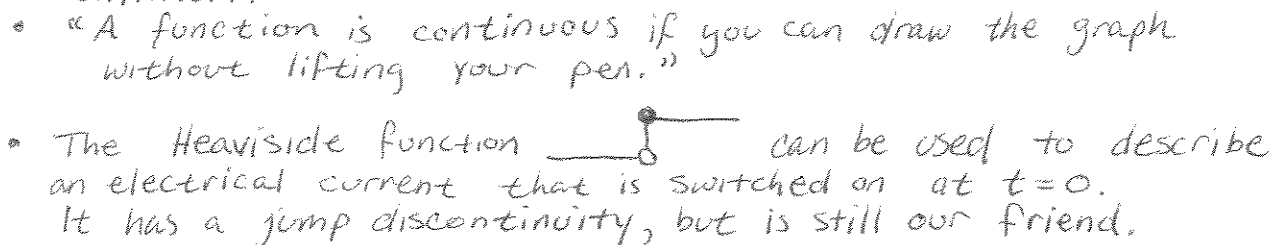 • "A function is continuous if you can draw the graph
without lifting your pen."
• The Heaviside function can be used to describe
an electrical current that is switched on at t=0.
It has a jump discontinuity, but is still our friend.